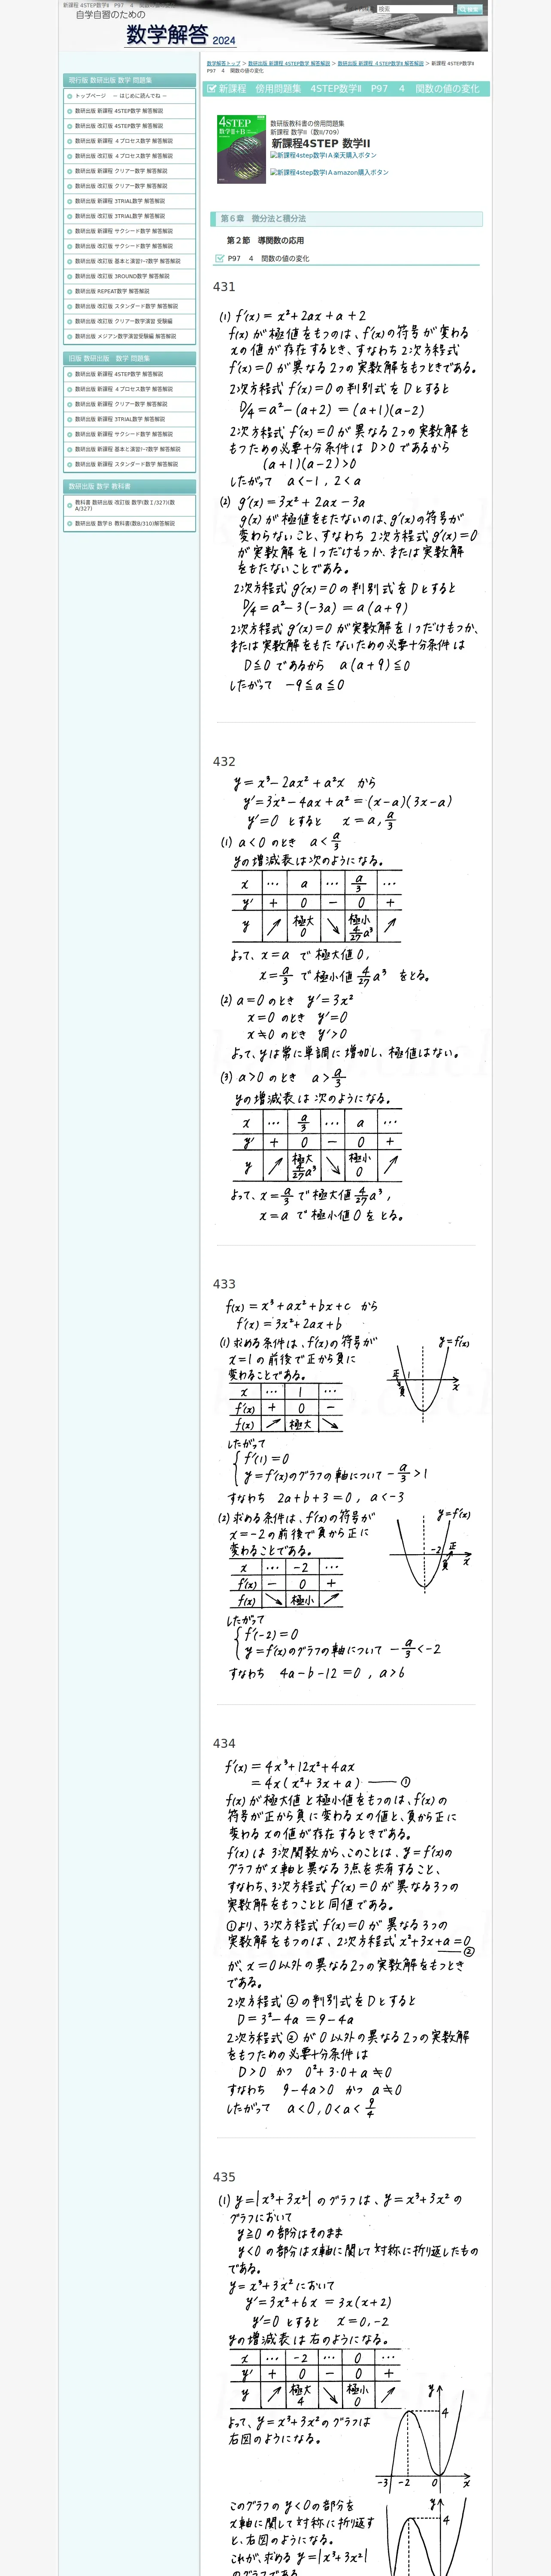 新課程 4STEP数学Ⅱ P97 4 関数の値の変化
自学自習のための
数学解答 2024
検索
検索
数学解答トップ > 数研出版 新課程 4STEP数学 解答解説 > 数研出版 新課程 4STEP数学Ⅱ 解答解説 > 新課程 4STEP数学Ⅱ
P97 4 関数の値の変化
現行版 数研出版 数学 問題集
トップページ － はじめに読んでね －
数研出版 新課程 4STEP数学 解答解説
数研出版 改訂版 4STEP数学 解答解説
数研出版 新課程 4プロセス数学 解答解説
数研出版 改訂版 4プロセス数学 解答解説
数研出版 新課程 クリアー数学 解答解説
数研出版 改訂版 クリアー数学 解答解説
数研出版 新課程 3TRIAL数学 解答解説
数研出版 改訂版 3TRIAL数学 解答解説
数研出版 新課程 サクシード数学 解答解説
数研出版 改訂版 サクシード数学 解答解説
数研出版 改訂版 基本と演習ﾃｰﾏ数学 解答解説
数研出版 改訂版 3ROUND数学 解答解説
数研出版 REPEAT数学 解答解説
数研出版 改訂版 スタンダード数学 解答解説
数研出版 改訂版 クリアー数学演習 受験編
数研出版 メジアン数学演習受験編 解答解説
旧版 数研出版 数学 問題集
数研出版 新課程 4STEP数学 解答解説
数研出版 新課程 4プロセス数学 解答解説
数研出版 新課程 クリアー数学 解答解説
数研出版 新課程 3TRIAL数学 解答解説
数研出版 新課程 サクシード数学 解答解説
数研出版 新課程 基本と演習ﾃｰﾏ数学 解答解説
数研出版 新課程 スタンダード数学 解答解説
数研出版 数学 教科書
教科書 数研出版 改訂版 数学Ⅰ(数Ⅰ/327)(数
A/327)
数研出版 数学Ｂ 教科書(数B/310)解答解説
新課程 傍用問題集 4STEP数学Ⅱ P97 4 関数の値の変化
4STEP
数学Ⅱ+B
数研版教科書の傍用問題集
新課程 数学Ⅱ（数Ⅱ/709）
新課程4STEP 数学II
新課程4step数学I A楽天購入ボタン
新課程4step数学I Aamazon購入ボタン
第６章 微分法と積分法
第２節 導関数の応用
P97 4 関数の値の変化
431
(1) f'(x) = x²+2ax+a+2
f(x) が極値をもつのは、f'(x)の符号が変わる
xの値が存在するとき、すなわち2次方程式
f'(x)=0 が異なる2つの実数解をもつときである。
2次方程式 f'(x)=0 の判別式をDとすると
D/4 = a²-(a+2) = (a+1)(a-2)
2次方程式 f'(x)=0 が異なる2つの実数解を
もつための必要十分条件は D>0であるから
(a+1)(a-2)>0
したがって a<-1, 2<a
(2) g'(x)=3x²+2ax-3a
g(x) が極値をもたないのは、g'(x)の符号が
変わらないこと、すなわち 2次方程式 g'(x)=0
が実数解を1つだけもつか、または実数解
をもたないことである。
2次方程式 g'(x)=0 の判別式をDとすると
D/4 = a²-3(-3a) = a(a+9)
2次方程式 g'(x)=0 が実数解を1つだけもつか、
または実数解をもたないための必要十分条件は
D≦0 であるから a(a+9)≦0
したがって -9≦a≦0
432
y=x³-2ax²+a²x から
y'=3x²-4ax+a²=(x-a)(3x-a)
y'=0 とすると x=a, a/3
(1) a<0 のとき a<a/3
yの増減表は次のようになる。
x … a … a/3 …
y' + 0 - 0 +
y ↗ 極大 0 ↘ 極小 4/27 a³ ↗
よって、x=a で極大値0,
x=a/3 で極小値 4/27 a³ をとる。
(2) a=0 のとき y'=3x²
x=0 のとき y'=0
x≠0 のとき y'>0
よって、yは常に単調に増加し、極値はない。
(3) a>0 のとき a>a/3
yの増減表は次のようになる。
x … a/3 … a …
y' + 0 - 0 +
y ↗ 極大 4/27 a³ ↘ 極小 0 ↗
よって、x=a/3 で極大値 4/27 a³,
x=a で極小値0をとる。
433
f(x)=x³+ax²+bx+c から
f'(x)=3x²+2ax+b
(1) 求める条件は、f'(x)の符号が
x=1の前後で正から負に
変わることである。
x … 1 …
f'(x) + 0 -
f(x) ↗ 極大 ↘
y=f'(x)
正 1
負 x
したがって
f'(1)=0
y=f'(x)のグラフの軸について -a/3>1
すなわち 2a+b+3=0, a<-3
(2) 求める条件は、f'(x)の符号が
x=-2の前後で負から正に
変わることである。
x … -2 …
f'(x) - 0 +
f(x) ↘ 極小 ↗
y=f'(x)
-2 正
負 x
したがって
f'(-2)=0
y=f'(x)のグラフの軸について -a/3<-2
すなわち 4a-b-12=0, a>6
434
f'(x)=4x³+12x²+4ax
=4x(x²+3x+a) ①
f(x)が極大値と極小値をもつのは、f'(x)の
符号が正から負に変わるxの値と、負から正に
変わるxの値が存在するときである。
f'(x)は3次関数から、このことは、y=f'(x)の
グラフがx軸と異なる3点を共有すること、
すなわち、3次方程式 f'(x)=0が異なる3つの
実数解をもつことと同値である。
①より、3次方程式 f'(x)=0が異なる3つの
実数解をもつのは、2次方程式 x²+3x+a=0
②
が、x=0以外の異なる2つの実数解をもつとき
である。
2次方程式②の判別式をDとすると
D=3²-4a=9-4a
2次方程式②が0以外の異なる2つの実数解
をもつための必要十分条件は
D>0 かつ 0²+3・0+a≠0
すなわち 9-4a>0 かつ a≠0
したがって a<0, 0<a<9/4
435
(1) y=|x³+3x²|のグラフは、y=x³+3x²の
グラフにおいて
y≧0の部分はそのまま
y<0の部分はx軸に関して対称に折り返したもの
である。
y=x³+3x²において
y'=3x²+6x=3x(x+2)
y'=0 とすると x=0, -2
yの増減表は右のようになる。
x … -2 … 0 …
y' + 0 - 0 +
y ↗ 極大 4 ↘ 極小 0 ↗
よって、y=x³+3x²のグラフは
右図のようになる。
y
4
-3 -2 0 x
このグラフのy<0の部分を
x軸に関して対称に折り返す
と、右図のようになる。
これが、求める y=|x³+3x²|
のグラフである。
y
4